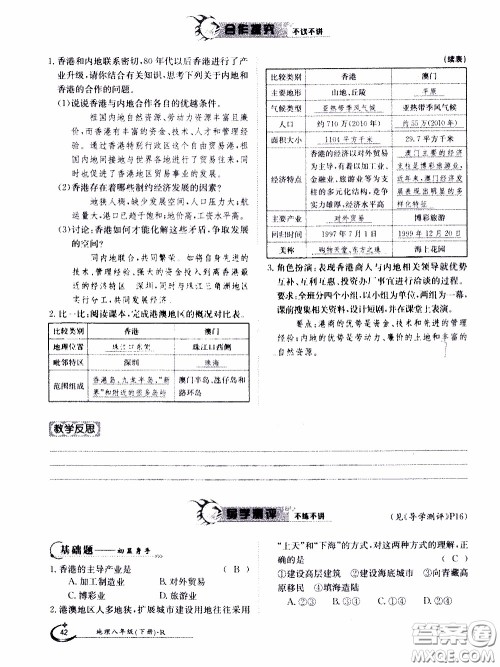 合作探究 不议不讲
1. 香港和内地联系密切,80 年代以后香港进行了产
业升级,请你结合有关知识,思考下列关于内地和
香港的合作的问题。
(1)说说香港与内地合作各自的优越条件。
祖国内地自然资源、劳动力资源丰富且廉
价,香港有丰富的资金、技术、人才和管理经
验。通过香港特别行政区这个自由贸易港,祖
国内地同港与世界各地进行了贸易往来,同时
也给香港贸易事业带来了巨利。
(2)香港存在着哪些制约经济发展的因素?
地狭人稠,缺少发展空间,人口压力大;航
运量大,港口已趋于饱和;地价高,工资水平高。
(3)讨论:香港如何才能化解这些矛盾,争取发展
的空间?
同内地联合,共同繁荣。如自身先进的
技术、管理经验、强大的资金投入深圳、珠海
的经济特区 深圳,同时与珠江三角洲地区
实行分工,共同发展。
2. 比一比:阅读课本,完成港澳地区的概况对比表。
比较类别 香港 澳门
地理位置 珠江口东侧 珠江口西侧
毗邻特区 深圳 珠海
范围组成 香港岛、九龙半岛、“新界”和附近的很多岛屿 澳门半岛、氹仔岛和路环岛
(续表)
比较类别 香港 澳门
主要地形 山地、丘陵 平原
气候类型 亚热带季风气候 亚热带季风气候
人口 约 710 万(2010 年) 约 55 万(2010 年)
面积大小 1104 平方千米 29.7 平方千米
经济特点 香港的经济以对外贸易为主,虽然有出口加工业、旅游业、金融业等产业支柱的多元化结构,竞争力较强,经济水平高 澳门主要的经济支柱是博彩旅游业,近年来,澳门经济发展出现多元化
主要产业 对外贸易 博彩旅游
回归时间 1997 年 7 月 1 日 1999 年 12 月 20 日
美称 购物天堂、东方之珠 海上花园
3. 角色扮演:表现香港商人与内地相关领导就优势
互补、互利互惠、投资办厂事宜进行洽谈的过程。
要求:全班分四个小组,以小组为单位,两组为一幕,
课前搜集相关资料,设计短剧,并在课堂上表演。
要点:港商的优势是资金、技术和先进的管理
经验;内地的优势是劳动力、廉价的土地和丰富的
自然资源。
教学反思
导学测评 不练不讲
(见《导学测评》P16)
基础题——初显身手
1. 香港的主导产业是 ( B )
A. 加工制造业 B. 对外贸易
C. 博彩业 D. 旅游业
2. 港澳地区人多地狭,扩展城市建设用地往往采用
“上天”和“下海”的方式,对这两种方式的理解,正
确的是 ( C )
①建设高层建筑 ②建设海底城市 ③向青藏高
原移民 ④填海造陆
A. ①② B. ②③ C. ①④ D. ②④
42 地理八年级(下册)·R